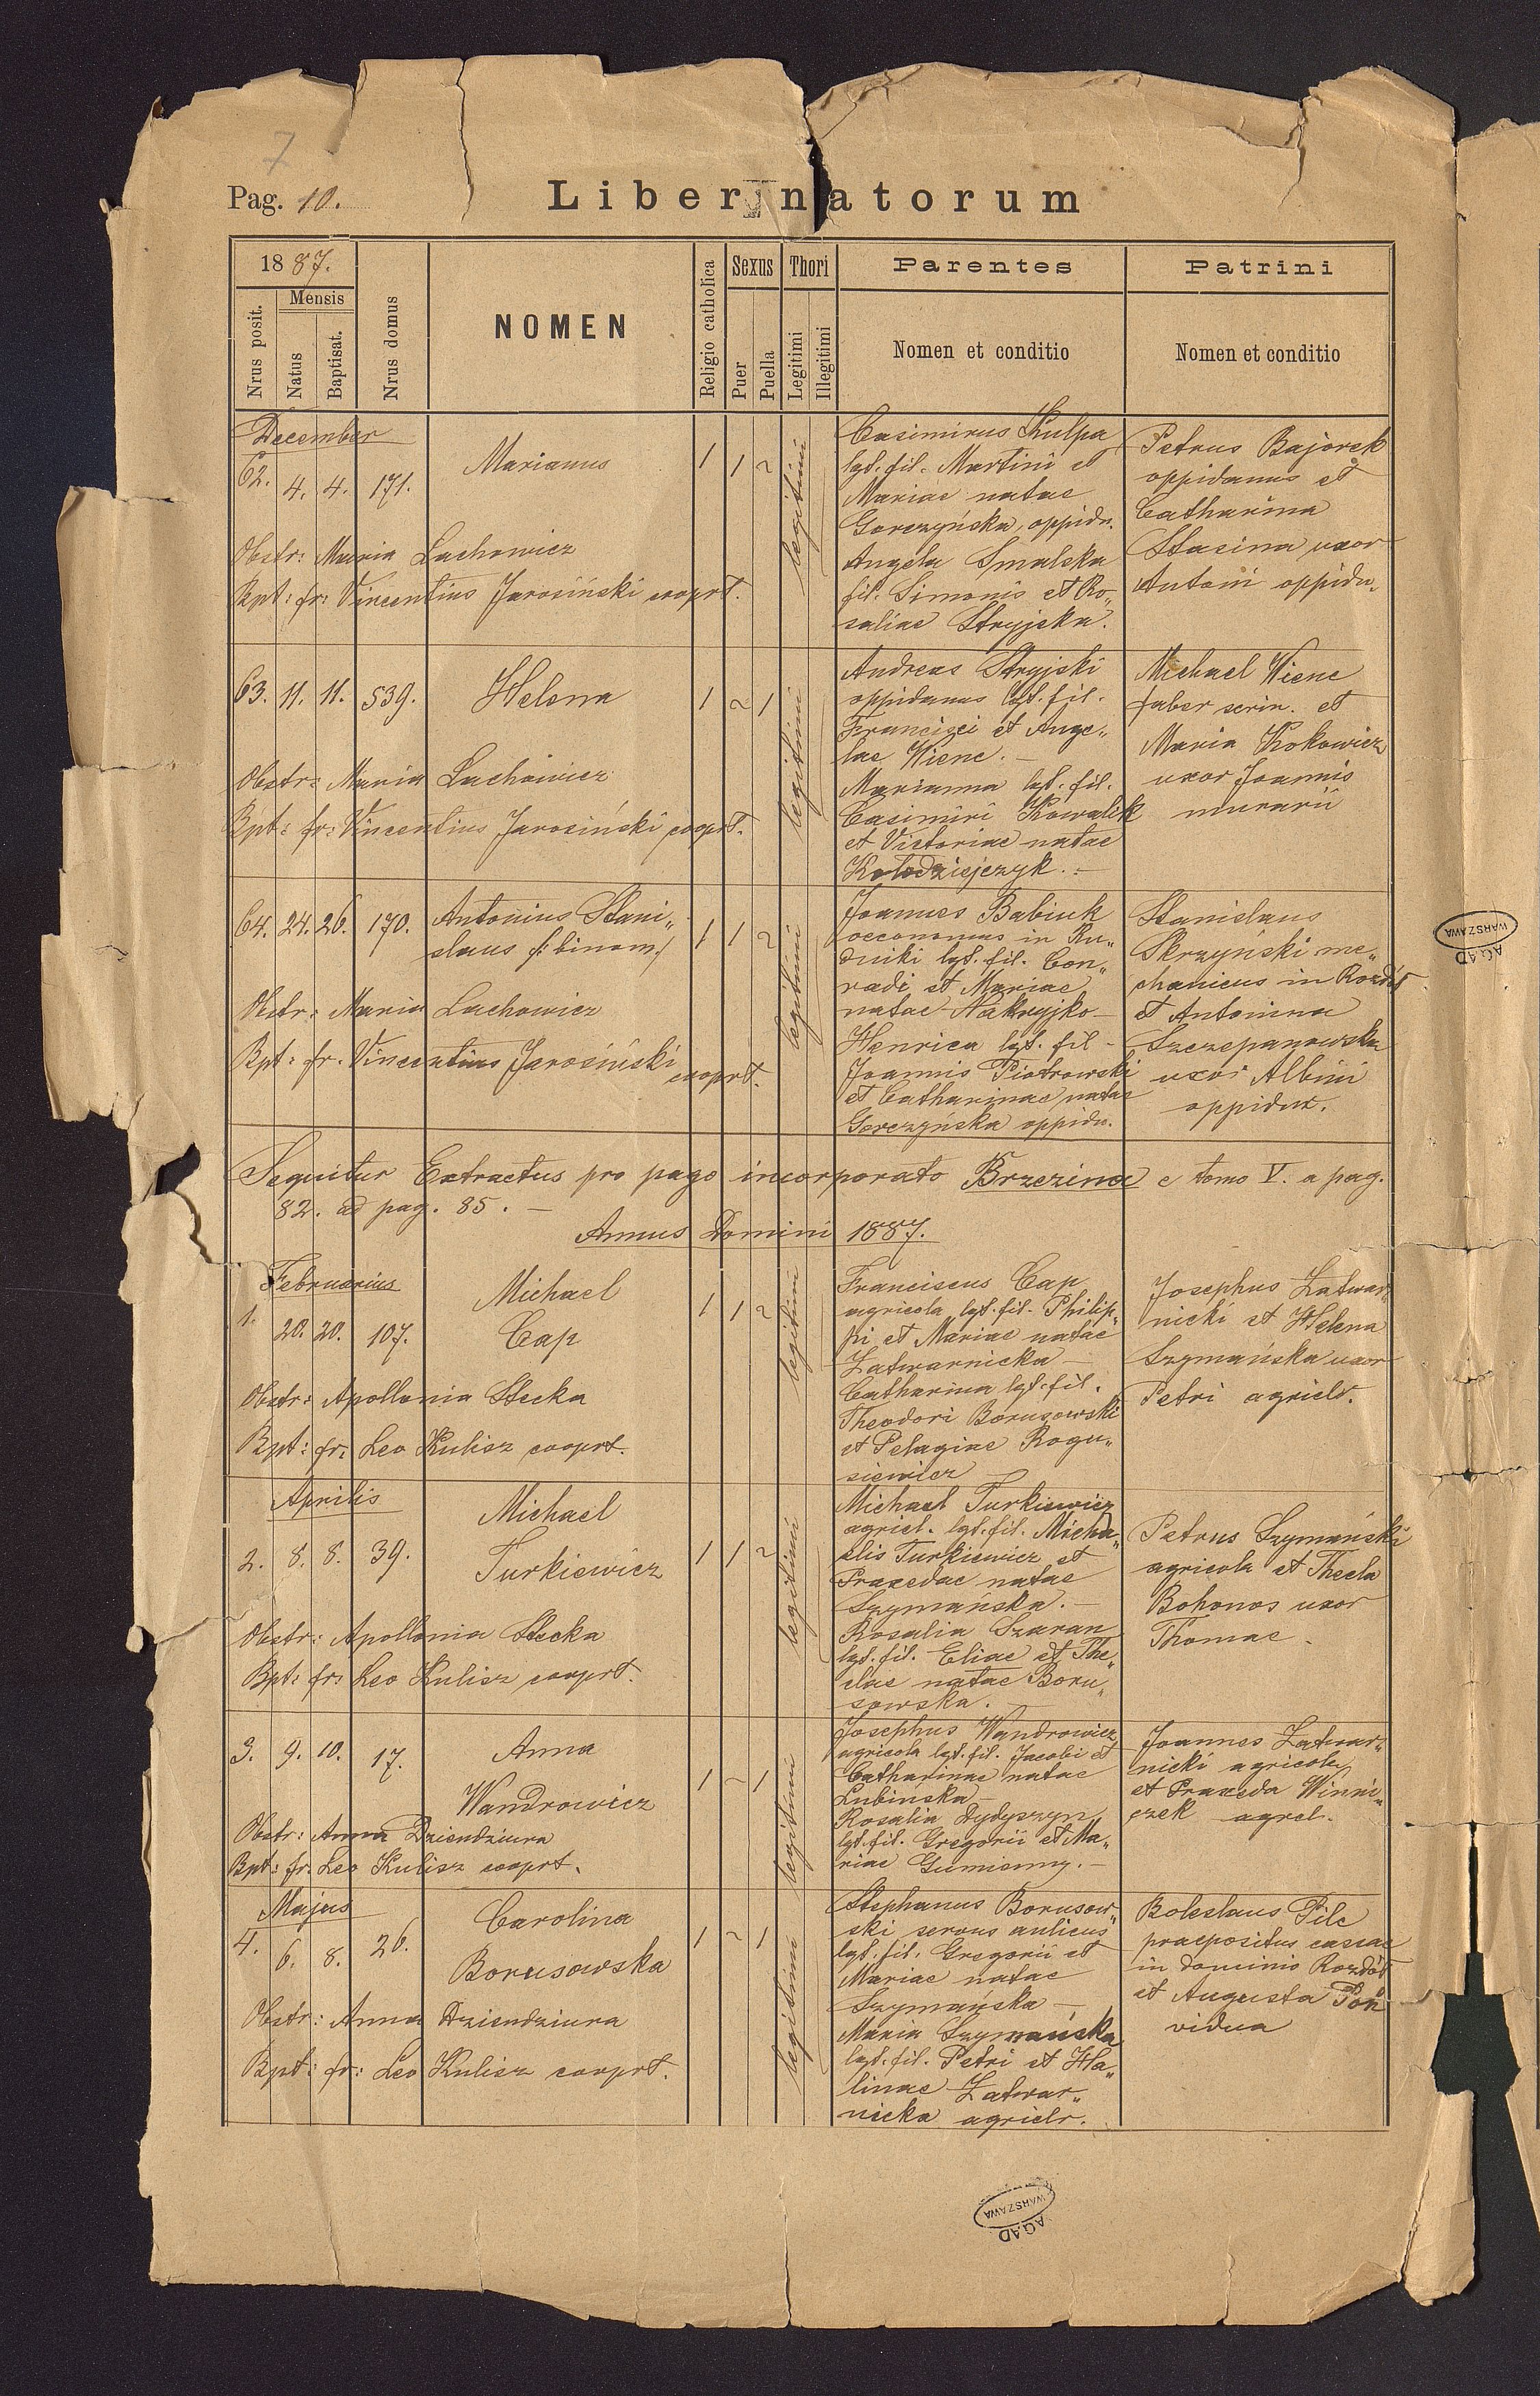 7
Pag. 10.
Liber natorum
1887.
Mensis
Nrus posit.
Natus
Baptisat.
Nrus domus
NOMEN
Religio catholica
Sexus
Puer
Puella
Thori
Legitimi
Illegitimi
Parentes
Nomen et conditio
Patrini
Nomen et conditio
December
62. 4. 4. 171. Marianus 1 1 ~ legitimi
Obstr: Maria Lachowicz
Bpt: fr: Vincentius Jarosiński cooprt.
Casimirus Kulpa
lgt. fil. Martini et
Mariae natae
Gorczyńska, oppidn.
Angela Smalska
fil. Simonis et Ro„
saliae Stryjska.
Petrus Bajorek
oppidanus et
Catharina
Stasina uxor
Antoni oppidn.
63. 11. 11. 539. Helena 1 ~ 1 legitimi
Obstr: Maria Lachowicz
Bpt: fr: Vincentius Jarosiński cooprt.
Andreas Stryjski
oppidanus lgt. fil.
Francisci et Ange„
lae Wiene. –
Marianna lgt. fil.
Casimiri Kowalik
et Victoriae natae
Kołodziejczyk. –
Michael Wiene
faber scrin. et
Maria Kokowicz
uxor Joannis
murarii
64. 24. 26. 170. Antonius Stani„
slaus /: binom:/ 1 1 ~ legitimi
Obstr: Maria Lachowicz
Bpt: fr. Vincentius Jarosiński
cooprt.
Joannes Babiuk
oeconomus in Ru„
dniki lgt. fil. Con„
radi et Mariae
natae Nakryjko –
Henrica lgt. fil –
Joannis Piotrowski
et Catharinae natae
Gorczyńska oppidn.
Stanislaus
Skrzyński me„
chanicus in Rozdół
et Antonina
Szczepanowska
uxor Albini
oppidan.
Sequitur Extractus pro pago incorporato Brzezina e tomo V. a pag.
82. ad pag. 85. –
Annus Domini 1887.
Februarius
1. 20. 20. 107. Michael
Cap 1 1 ~ legitimi
Obstr: Apollonia Stecka
Bpt: fr: Leo Kulisz cooprt.
Franciscus Cap
agricola, lgt. fil. Philip„
pi et Mariae natae
Zatwarnicka –
Catharina lgt. fil.
Theodori Borusowski
et Pelagiae Rogu„
siewicz
Josephus Zatwar„
nicki et Helena
Szymańska uxor
Petri agricolr.
Aprilis
2. 8. 8. 39. Michael
Turkiewicz 1 1 ~ legitimi
Obstr: Apollonia Stecka
Bpt: fr: Leo Kulisz cooprt.
Michael Turkiewicz
agricl. lgt. fil. Micha„
elis Turkiewicz et
Praxedae natae
Szymańska. –
Rosalia Szaran
lgt. fil. Eliae et The„
clae natae Boru„
sowska.
Petrus Szymański
agricola et Thecla
Bohonos uxor
Thomae.
3. 9. 10. 17. Anna
Wandrowicz 1 ~ 1 legitimi
Obstr: Anna Dziendziura
Bpt: fr: Leo Kulisz cooprt.
Josephus Wandrowicz
agricola lgt. fil. Jacobi et
Catharinae natae
Lubińska –
Rosalia Dydyszyn
lgt. fil. Gregorii et Ma„
riae Gumienny. –
Joannes Zatwar„
nicki agricola
et Praxeda Winni„
czek agrcl.
Majus
4. 6. 8. 26. Carolina
Borusowska 1 ~ 1 legitimi
Obstr: Anna Dziendziura
Bpt: fr: Leo Kulisz cooprt.
Stephanus Borusow„
ski servus aulicus
lgt. fil. Gregorii et
Mariae natae
Szymańska –
Maria Szymańska
lgt. fil. Petri et Ha„
linae Zatwar„
nicka agricolr.
Boleslaus Pilc
praepositus cassae
in dominio Rozdół
et Augusta
vidua
AGAD
WARSZAWA
AGAD
WARSZAWA